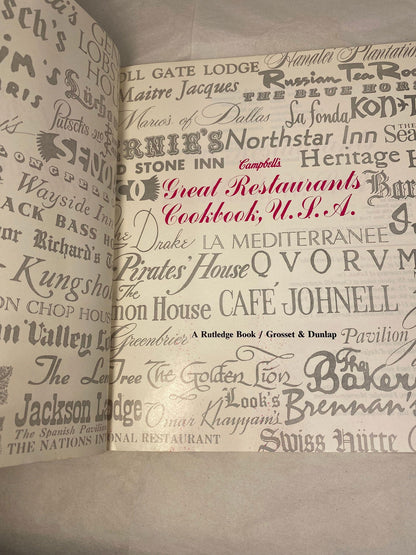 TOLL GATE LODGE
Hanalei Plantation
Maitre Jacques
Russian Tea Room
THE BLUE HORSE
Mario's of Dallas
la fonda
KON-
Putsch's 210
ERNIE'S
Northstar Inn
Sea
LONGFELLOW
STONE INN
Campbell's
Heritage
Wayside Inn
Great Restaurants
Cookbook, U.S.A.
BLACK BASS HO
Drake
LA MEDITERRANEE
Poor Richard's
Pirates' House
QVORVM
Kungsholm
The
non House
CAFÉ JOHNELL
ON CHOP HOUSE
Greenbrier
A Rutledge Book / Grosset & Dunlap
Pavilion
Sun Valley Lod
The Lem
Tree
The Golden Lion
The
Baker
Jackson Lodge
Look's
Brennan's
The Spanish Pavilion
Omar Khayyam's
THE NATIONS INT
ONAL RESTAURANT
Swiss Hütte